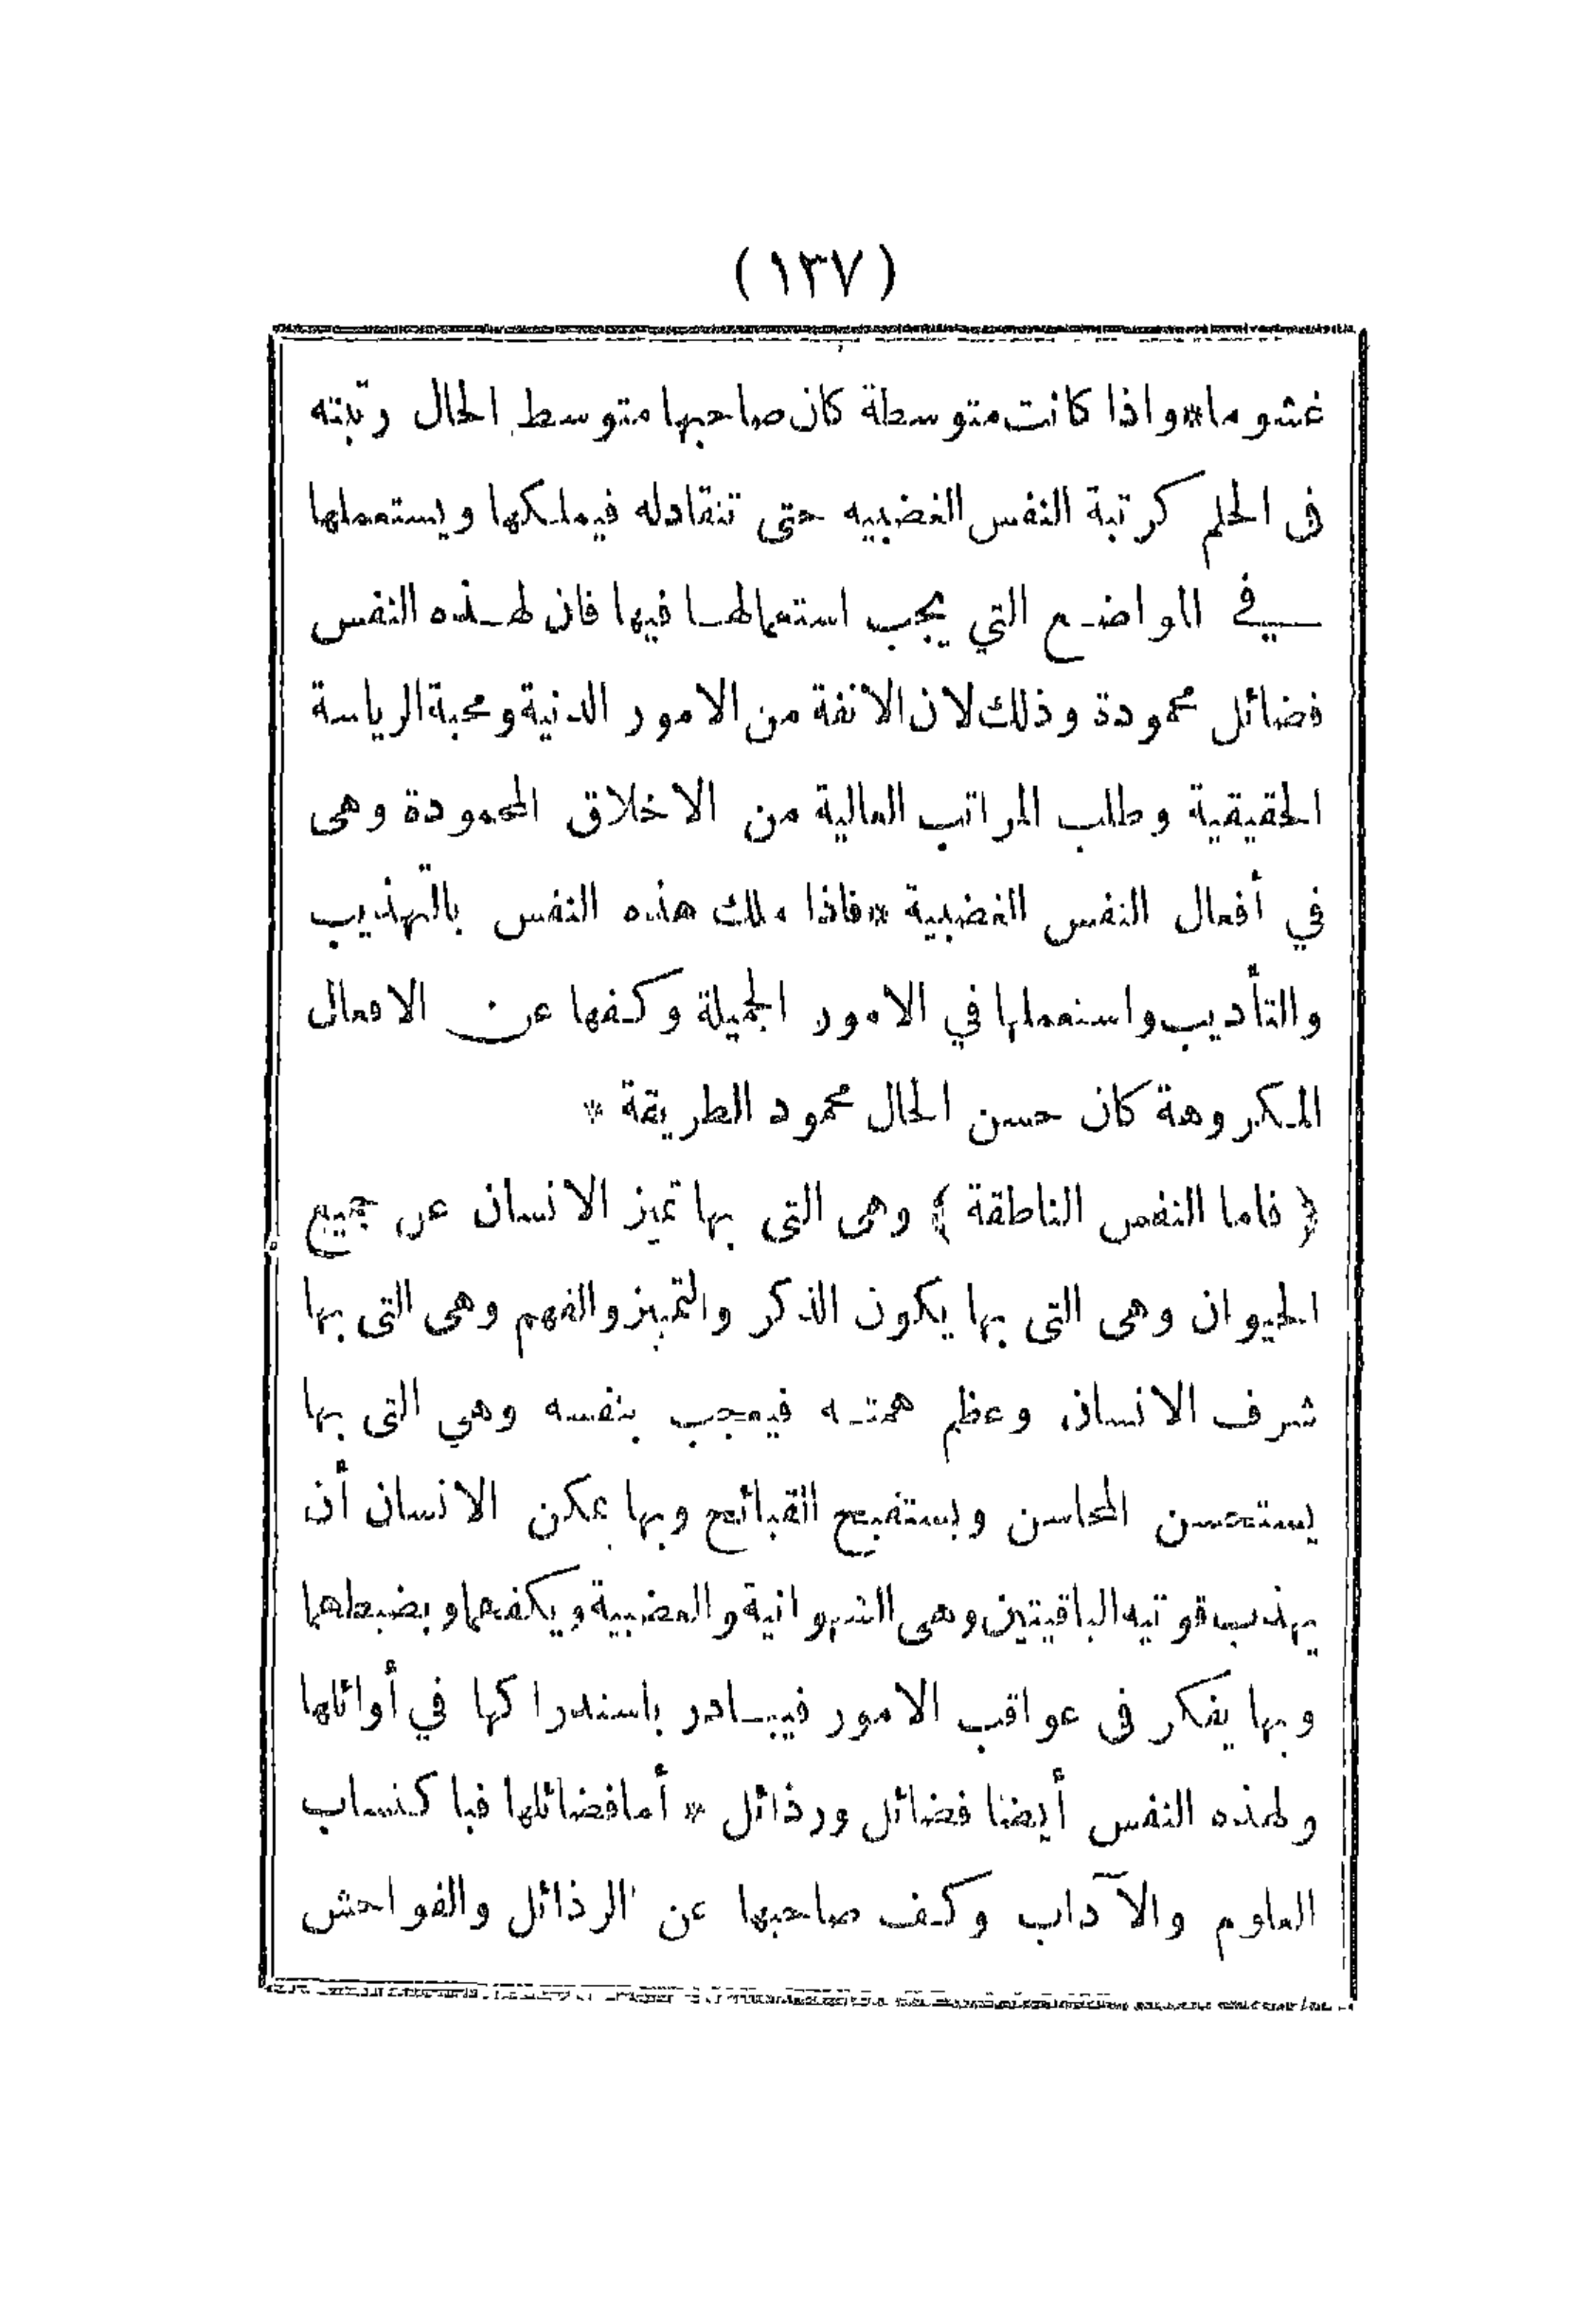 (١٣٧)
غشوما * واذا كانت متوسطة كان صاحبها متوسط الحال رتبته
فى الحلم كرتبة النفس الغضبيه حتى تنقاد له فيملكها ويستعملها
في المواضع التي يجب استعمالها فيها فان لهذه النفس
فضائل محمودة وذلك لان الانفة من الامور الدنية ومحبة الرياسة
الحقيقية وطلب المراتب العالية من الاخلاق المحمودة وهى
في أفعال النفس الغضبية * فاذا ملك هذه النفس بالتهذيب
والتأديب واستعملها في الامور الجميلة وكفها عن الافعال
المكروهة كان حسن الحال محمود الطريقة *
﴿ فاما النفس الناطقة ﴾ وهى التى بها تميز الانسان عن جميع
الحيوان وهى التى بها يكون الذكر والتمييز والفهم وهى التى بها
شرف الانسان وعظم همته فيعجب بنفسه وهي التى بها
يستحسن المحاسن ويستقبح القبائح وبها يمكن الانسان أن
يهذب قوتيه الباقيتين وهى الشهوانية والغضبية ويكفهما ويضبطهما
وبها يفكر فى عواقب الامور فيبادر باستدراكها في أوائلها
ولهذه النفس أيضا فضائل ورذائل * أما فضائلها فباكتساب
العلوم والآداب وكف صاحبها عن الرذائل والفواحش